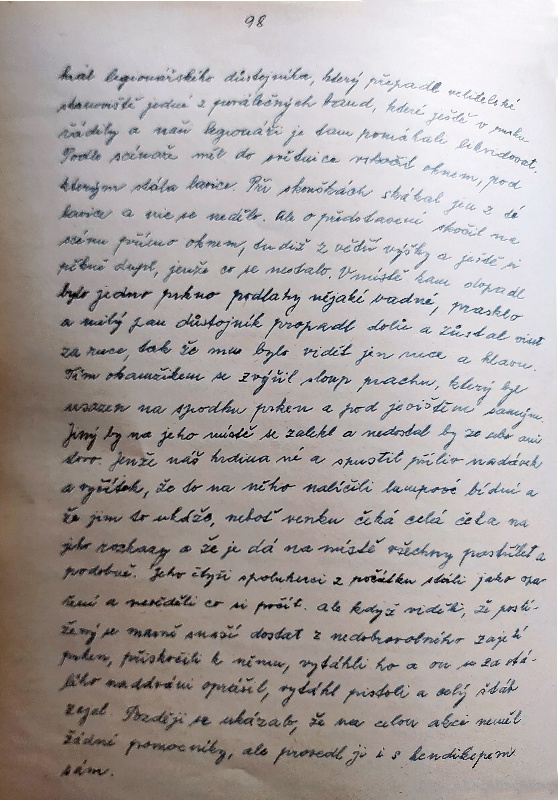 98
hrál legionářského důstojníka, který přepadl velitelské
stanoviště jedné z poválečných band, které ještě v
řádily a naši legionáři je tam pomáhali likvidovat.
Podle scénáře měl do světnice vskočit oknem, pod
kterým stála lavice. Při zkouškách skákal jen z té
lavice a nic se nedělo. Ale o představení skočil na
scénu přímo oknem, tudíž z větší výšky a ještě si
pěkně dupl, jenže co se nestalo. V místě kam dopadl
bylo jedno prkno podlahy nějaké vadné, prasklo
a milý pan důstojník propadl dolů a zůstal viset
za ruce, tak že mu bylo vidět jen ruce a hlavu.
Tím okamžikem se zvýšil sloup prachu, který byl
usazen na spodku prken a pod jevištěm samým.
Jiný by na jeho místě se zalekl a nedostal by ze sebe ani
slovo. Jenže náš hrdina né a spustil příliv nadávek
a výčitek, že to na něho nalíčili lumpové bídní a
že jim to ukáže, neboť venku čeká celá četa na
jeho rozkazy a že je dá na místě všechny postřílet a
podobně. Jeho čtyři spoluherci z počátku stáli jako opa-
ření a nevěděli co si počít. Ale když viděli, že posti-
žený se marně snaží dostat z nedobrovolného zajetí
prken, přiskočili k němu, vytáhli ho a on se za stá-
lého nadávání oprášil, vytáhl pistoli a celý štáb
zajal. Později se ukázalo, že na celou akci neměl
žádné pomocníky, ale provedl ji i s hendikepem
sám.